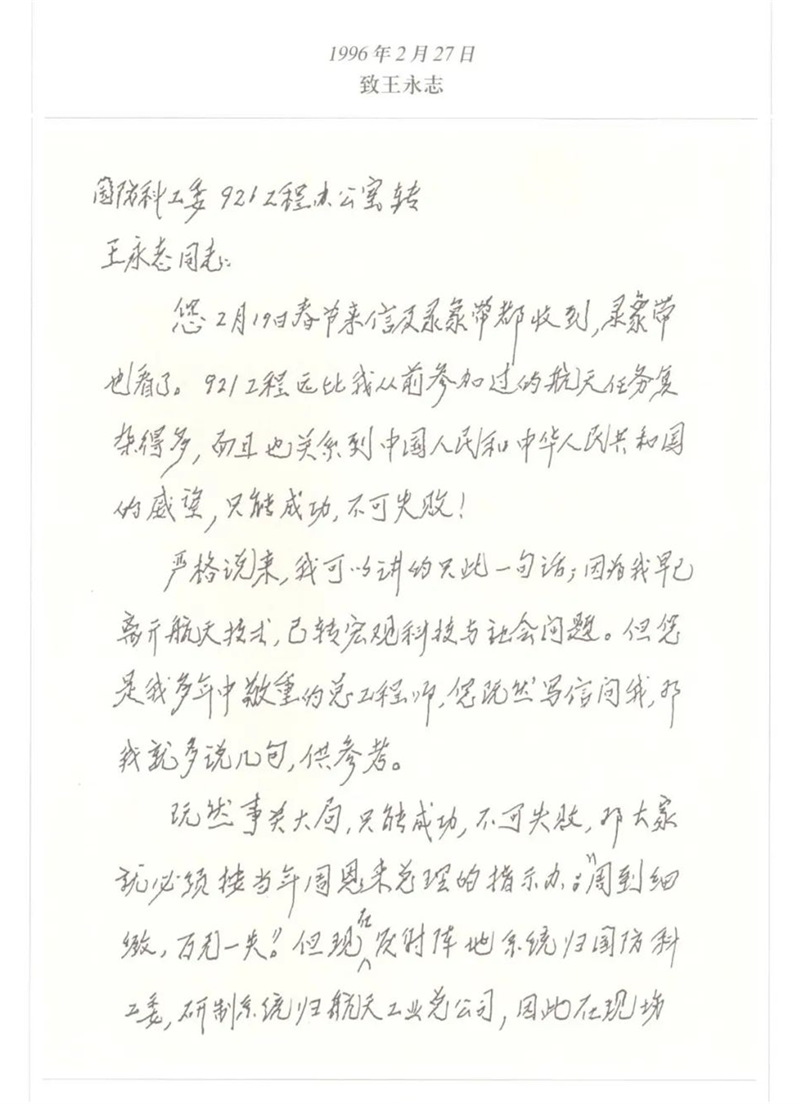 1996年2月27日
致王永志
国防科工委921工程办公室转
王永志同志:
您2月19日春节来信及录象带都收到,录象带
也看了。921工程远比我从前参加过的航天任务复
杂得多,而且也关系到中国人民和中华人民共和国
的威望,只能成功,不可失败!
严格说来,我可以讲的只此一句话;因为我早已
离开航天技术,已转宏观科技与社会问题。但您
是我多年中敬重的总工程师,您既然写信问我,那
我就多说几句,供参考。
既然事关大局,只能成功,不可失败,那大家
就必须按当年周恩来总理的指示办:“周到细
致,万无一失”。但现在发射阵地系统归国防科
工委,研制系统归航天工业总公司,因此在现场